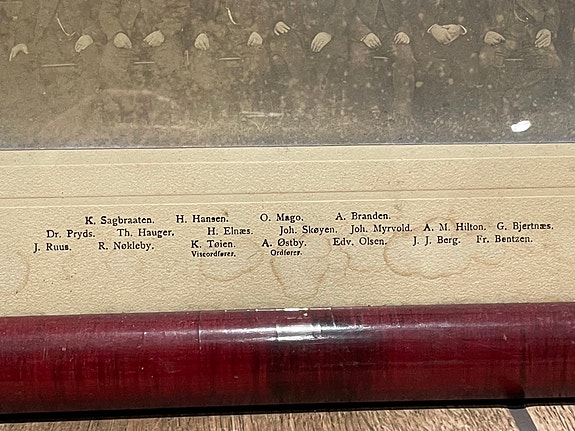 K. Sagbraaten. H. Hansen. O. Mago. A. Branden.
Dr. Pryds. Th. Hauger. H. Elnæs. Joh. Skøyen. Joh. Myrvold. A. M. Hilton. G. Bjertnæs.
J. Ruus. R. Nøkleby. K. Tøien. A. Østby. Edv. Olsen. J. J. Berg. Fr. Bentzen.
Viseordfører. Ordfører.